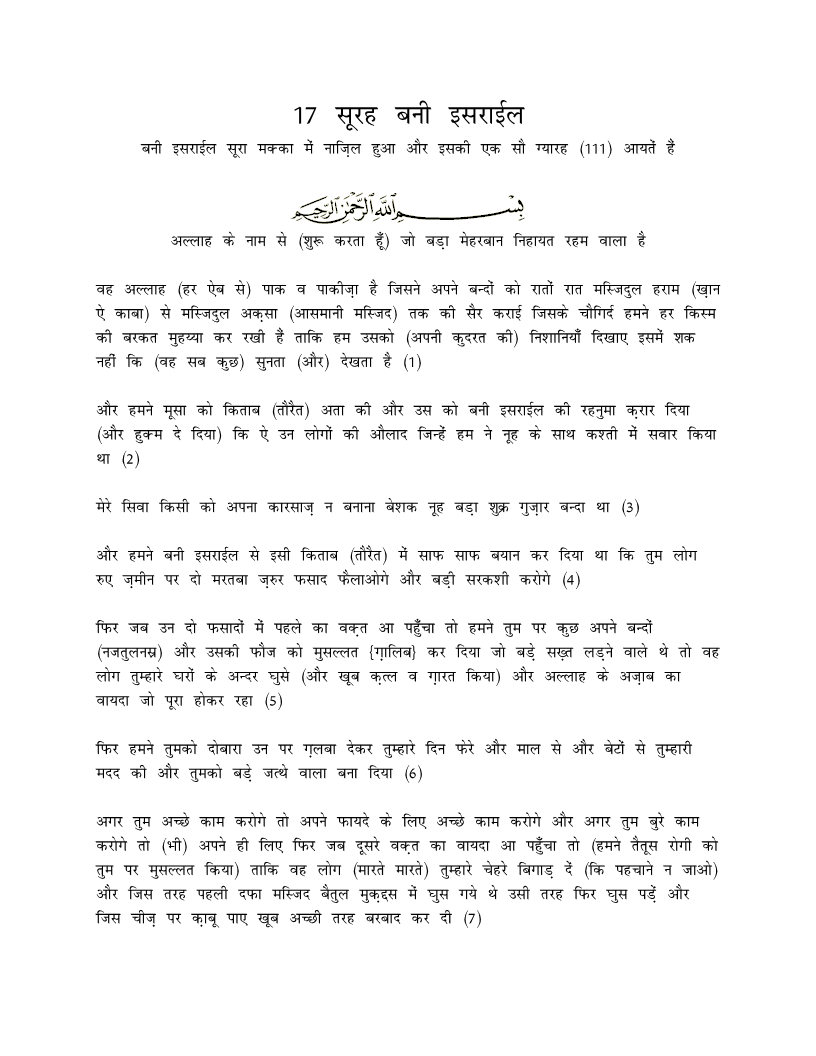 17 सूरह बनी इसराईल
बनी इसराईल सूरा मक्का में नाज़िल हुआ और इसकी एक सौ ग्यारह (111) आयतें हैं
بِسْمِ اللَّهِ الرَّحْمَٰنِ الرَّحِيمِ
अल्लाह के नाम से (शुरू करता हूँ) जो बड़ा मेहरबान निहायत रहम वाला है
वह अल्लाह (हर ऐब से) पाक व पाकीज़ा है जिसने अपने बन्दों को रातों रात मस्जिदुल हराम (ख़ान
ऐ काबा) से मस्जिदुल अक़सा (आसमानी मस्जिद) तक की सैर कराई जिसके चौगिर्द हमने हर किस्म
की बरकत मुहय्या कर रखी हैं ताकि हम उसको (अपनी कुदरत की) निशानियाँ दिखाए इसमें शक
नहीं कि (वह सब कुछ) सुनता (और) देखता है (1)
और हमने मूसा को किताब (तौरैत) अता की और उस को बनी इसराईल की रहनुमा क़रार दिया
(और हुक्म दे दिया) कि ऐ उन लोगों की औलाद जिन्हें हम ने नूह के साथ कश्ती में सवार किया
था (2)
मेरे सिवा किसी को अपना कारसाज़ न बनाना बेशक नूह बड़ा शुक्र गुज़ार बन्दा था (3)
और हमने बनी इसराईल से इसी किताब (तौरैत) में साफ साफ बयान कर दिया था कि तुम लोग
रुए ज़मीन पर दो मरतबा ज़रुर फसाद फैलाओगे और बड़ी सरकशी करोगे (4)
फिर जब उन दो फसादों में पहले का वक़्त आ पहुँचा तो हमने तुम पर कुछ अपने बन्दों
(नजतुलनस्र) और उसकी फौज को मुसल्लत {ग़ालिब} कर दिया जो बड़े सख़्त लड़ने वाले थे तो वह
लोग तुम्हारे घरों के अन्दर घुसे (और खूब क़त्ल व ग़ारत किया) और अल्लाह के अज़ाब का
वायदा जो पूरा होकर रहा (5)
फिर हमने तुमको दोबारा उन पर ग़लबा देकर तुम्हारे दिन फेरे और माल से और बेटों से तुम्हारी
मदद की और तुमको बड़े जत्थे वाला बना दिया (6)
अगर तुम अच्छे काम करोगे तो अपने फायदे के लिए अच्छे काम करोगे और अगर तुम बुरे काम
करोगे तो (भी) अपने ही लिए फिर जब दूसरे वक़्त का वायदा आ पहुँचा तो (हमने तैतूस रोगी को
तुम पर मुसल्लत किया) ताकि वह लोग (मारते मारते) तुम्हारे चेहरे बिगाड़ दें (कि पहचाने न जाओ)
और जिस तरह पहली दफा मस्जिद बैतुल मुक़द्दस में घुस गये थे उसी तरह फिर घुस पड़ें और
जिस चीज़ पर क़ाबू पाए खूब अच्छी तरह बरबाद कर दी (7)